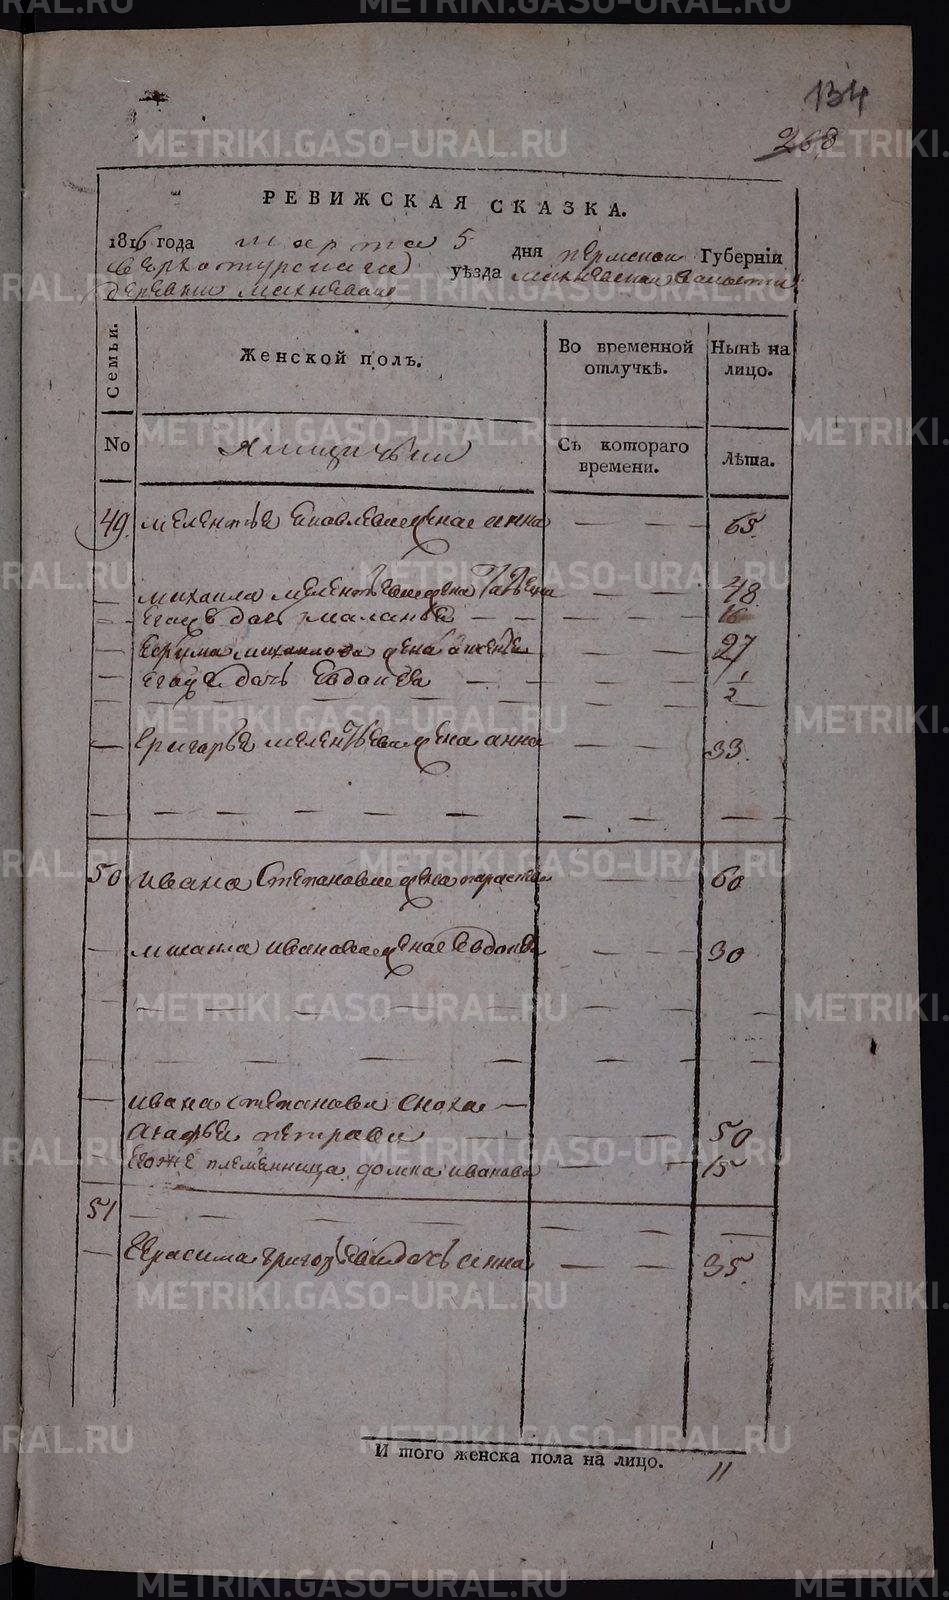 134
268
РЕВИЖСКАЯ СКАЗКА.
1816 года марта 5 дня пермской Губернїи
верхотурскаго уѣзда махневской волости
деревни махневой
Семьи. Женской полъ. Во временной отлучкѣ. Нынѣ на лицо.
No Съ котораго времени. Лѣта.
49. мелентья жена анна — — 65.
— михаила мелентьева жена — — 48
— — егож дочь маланья — — — — — 16
— михайлова жена — — 27
— егож дочь Евдокия — — — — 1/2
— григорья мелентьева жена анна — — 33.
50 ивана Степанова жена парасковья — — 60
— михаила иванова жена Евдокия — — 30
— ивана степанова сноха —
агафья петрова — — 50
— егоже племенница домна иванова — — 15
51
— Герасима григорьева дочь анна — — 35.
И того женска пола на лицо. 11
METRIKI.GASO-URAL.RU